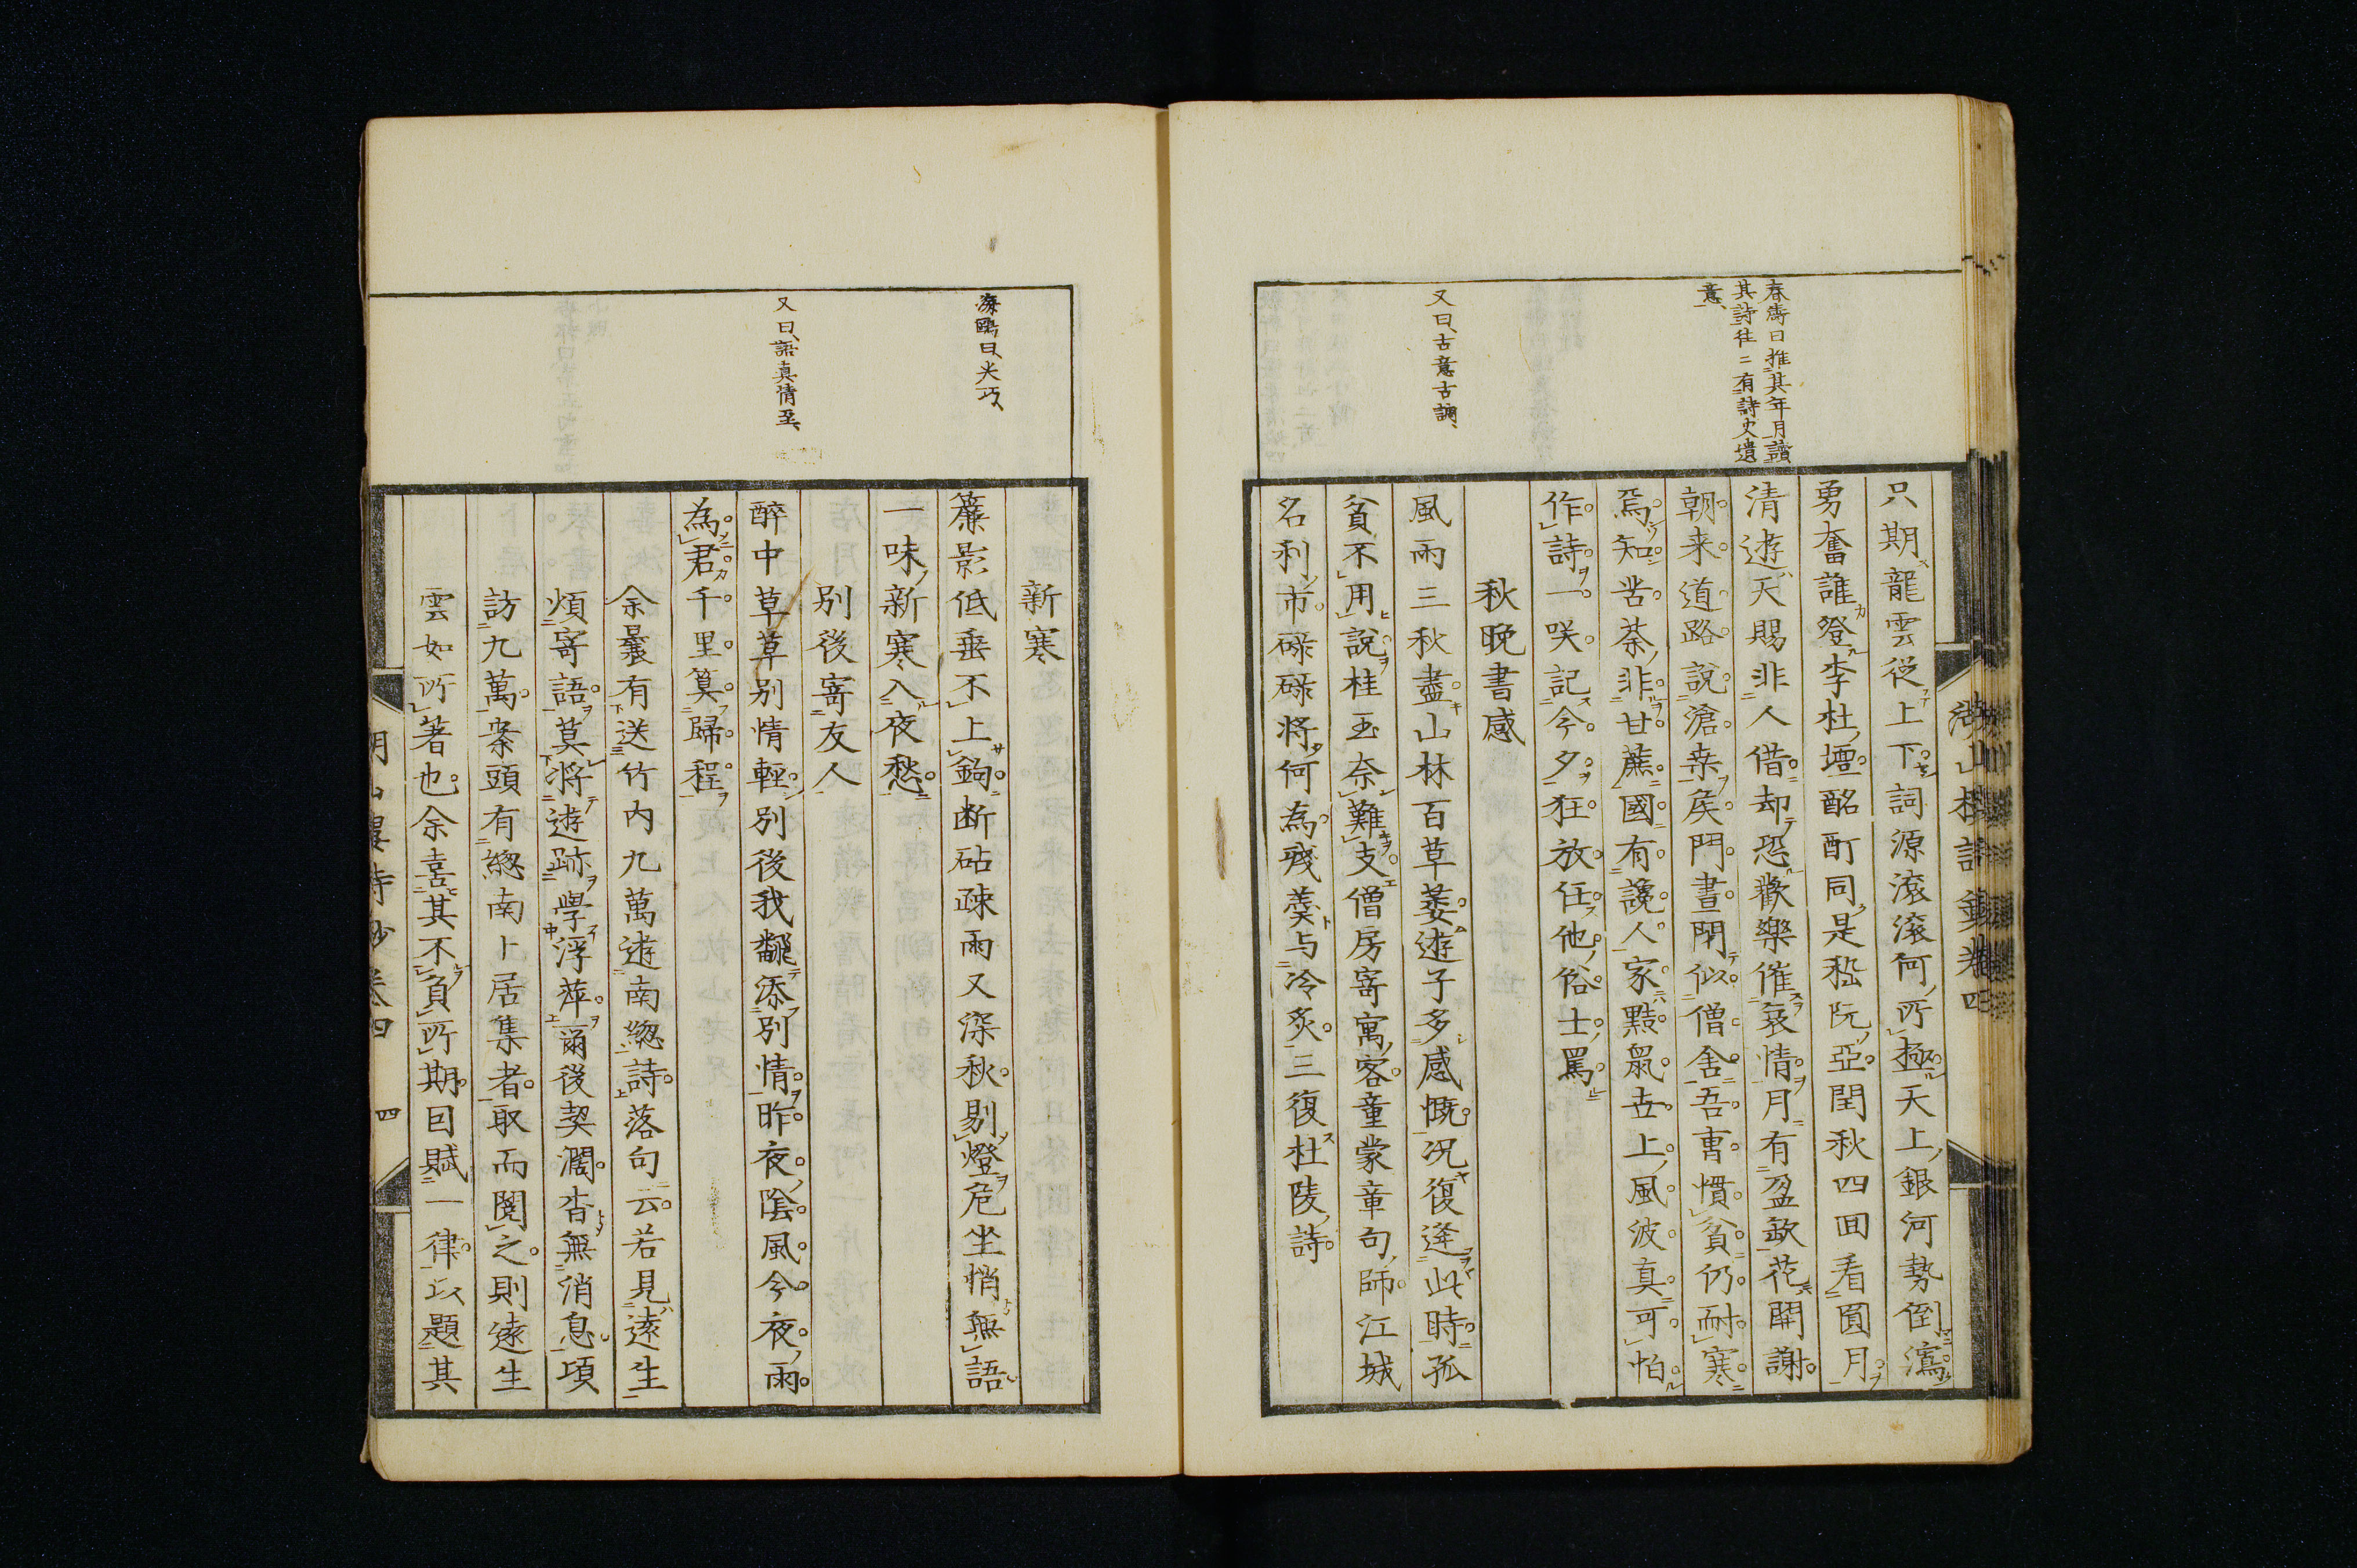 春濤曰推其年月讀
其詩往二有詩史遺
意、
又曰、古意古調、
只期龍雲從上下詞源滾滾何所極天上銀河勢倒瀉
勇奮誰登李杜壇酩酊同是嵇阮亞閏秋四回看圓月
清遊天賜非人借却恐歡樂催哀情月有盈缺花開謝
朝来道路說滄桒侯門晝閉似僧舍吾曹慣貧仍耐寒
焉知苦荼非甘蔗國有讒人家黠鼠世上風波真可怕
作詩一咲記今夕狂放任他俗士罵
秋晚書感
風雨三秋盡山林百草萎遊子多感慨況復逢此時孤
貧不用說桂玉奈難支僧房寄寓客童蒙章句師江城
名利市碌碌將何為殘羹与冷炙三復杜陵詩
湖山樓詩鈔卷四
海鷗曰、尖巧、
又曰、語真情至、
新寒
簾影低垂不上鉤断砧疎雨又深秋剔燈危坐悄無語
一味新寒入夜愁
別後寄友人
醉中草草別情輕別後我翻添別情昨夜陰風今夜雨
為君千里算歸程
余曩有送竹内九萬遊南総詩落句云若見遠生
煩寄語莫將遊跡學浮萍爾後契濶杳無消息頃
訪九萬案頭有總南卜居集者取而閱之則遠生
雲如所著也余喜其不負所期因賦一律以題其
湖山樓詩鈔卷四
四